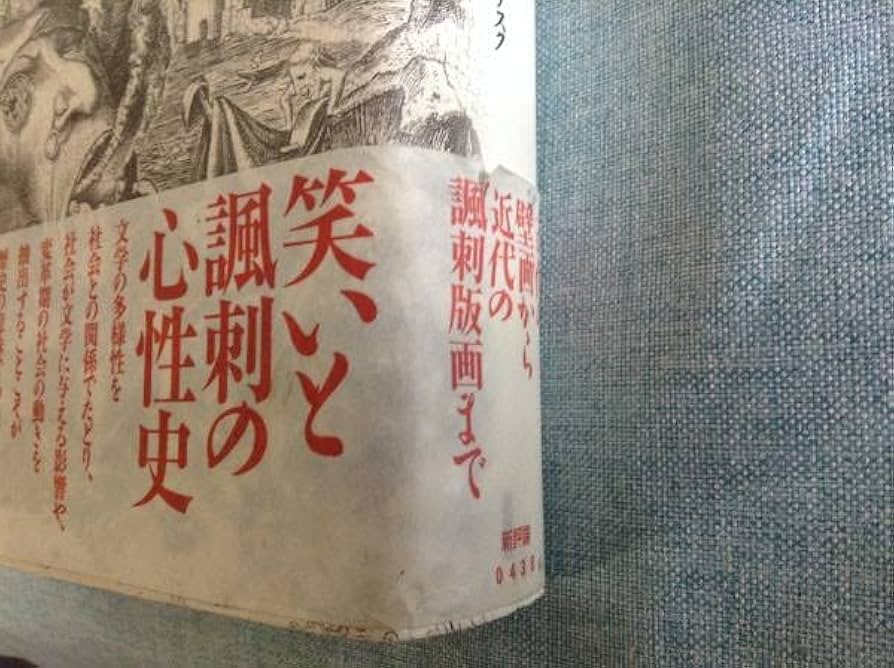 笑いと
諷刺の
心性史
文学の多様性を
社会との関係でたどり、
社会が文学に与える影響や、
変革期の社会の動きを
抽出することこそが
壁画から
近代の
諷刺版画まで
新評論